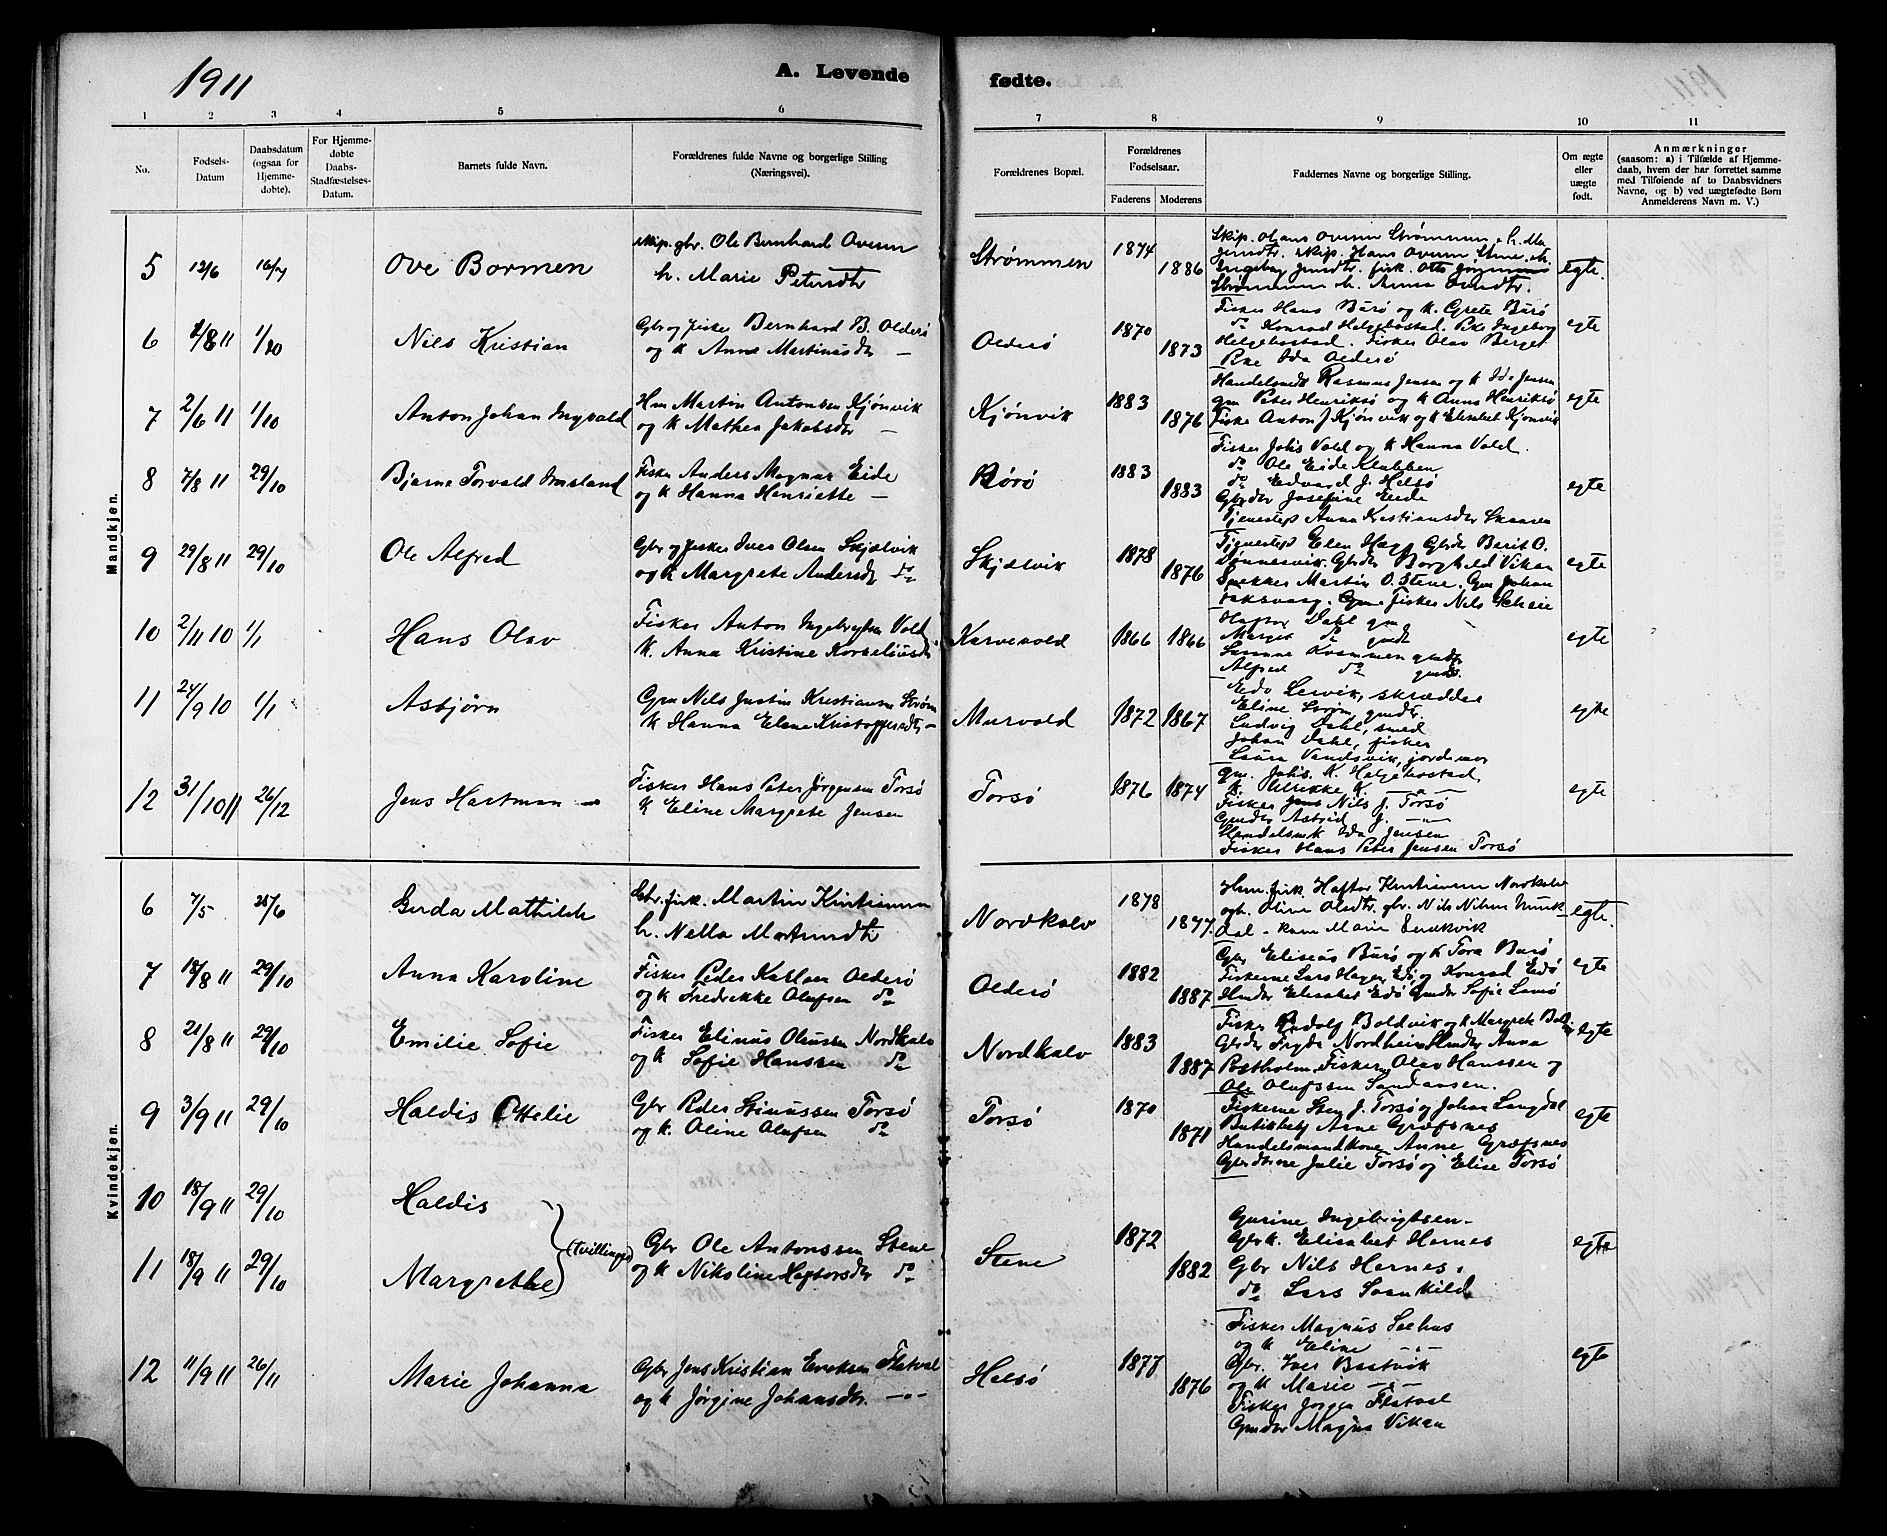 1911
A. Levende fødte.
1 2 3 4 5 6 7 8 9 10 11
No.
Fødsels-Datum
Daabsdatum (ogsaa for Hjemme-døbte).
For Hjemme-døbte Daabs-Stadfæstelses-Datum.
Barnets fulde Navn.
Forældrenes fulde Navne og borgerlige Stilling (Næringsvei).
Forældrenes Bopæl.
Forældrenes Fødselsaar.
Faderens Moderens
Faddernes Navne og borgerlige Stilling.
Om ægte eller uægte født.
Anmærkninger
(saasom: a) i Tilfælde af Hjemme-
daab, hvem der har forrettet samme
med Tilføiende af to Daabsvidners
Navne, og b) ved uægtefødte Børn
Anmelderens Navn m. V.)
Mandkjøn.
5 12/6 16/7 Ove Bormen
skip. gbr. Ole Bernhard
h. Marie
Strømmen 1874 1886
Skip. Hans Strømmen
egte.
6 2/8 11 1/10 Nils Kristian
Gbr og fisker Bernhard B. Olderø
og k Anne Martinusdtr —
Olderø 1870 1873
Fisker Hans Burø og k. Grete Burø
do Konrad Helgebostad. Pike Ingeborg
Helgebostad. Fisker Olav Berget
Pike Ida Olderø
egte
7 2/6 11 1/10 Anton Johan Ingvald
Hm Martin Antonsen Kjønvik
og k Mathea Jakobsdtr —
Kjønvik 1883 1876
Handelsmd Rasmus Jensen og k Ida Jensen
gm Peter Henriksø og k Anna Henriksø
Fisker Anton J Kjønvik og k Elisabet Kjønvik
egte
8 7/8 11 29/10 Bjarne Torvald Imsland
Fisker Anders Magnus Eide
og k Hanna Henriette —
Rørø 1883 1883
Fisker Johs Vold og k Hanna Vold.
do Ole Eide Klubben
do Edvard J. Helsø
Gbrdtr Josefine Eide
Tjenestep Anna Kristiansdtr Skaaren
egte
9 29/8 11 29/10 Ole Alfred
Gbr og fisker Iver Olsen Skjælvik
og k Margrete Andersdtr do
Skjælvik 1878 1876
Tjenestep Elen Gbrdtr Berit O.
Gbrdtr Borghild Vikan
Snekker Martin O. Stene. Gm Johan
Fisker Nils
egte
10 2/11 10 1/1 Hans Olav
Fisker Anton Ingebrigtsen Vold
k. Anna Kristine Korneliusdtr
Kurvevold 1866 1866
Haftor Dahl gm
Marget do gmdt
Susanne Kvammen gmdtr
Alfred do
egte
11 24/9 10 1/1 Asbjørn
Gm Nils Justin Kristiansen Strøm
k Hanna Elene Kristoffersdtr —
Murvold 1872 1867
Lervik, skrædder
Eline Strøm, gmdtr.
Ludvig Dahl, smed
Johan Dahl, fisker
Laura Vandsvik, jordemor
egte
12 31/10 11 26/12 Jens Hartman
Fisker Hans Peter Jørgensen Torsø
k Eline Margrete Jensen
Torsø 1876 1874
gm. Johs. K. Helgebostad
k. Ulrikke K. —"—
Fisker Nils J. Torsø
Gmdtr Astrid J. —"—
Handelsmk Ida Jensen
Fisker Hans Peter Jensen Torsø
egte
Kvindekjøn.
6 7/5 25/6 Gerda Mathilde
Gbr. fisk. Martin Kristiansen
h. Nella
Nordkalv 1878 1877.
Hsm. fisk Haftor Kristiansen Nordkalv
og h. Oline Olsdtr. gbr. Nils Nilsen
dal - kone Marie
egte.
7 18/8 11 29/10 Anna Karoline
Fisker Peder Karlsen Olderø
og k Fredrekke Olufsen do
Olderø 1882 1887
Gbr Eliseus Burø og k Tora Burø
Fiskerne Lars Hagen Edø og Konrad Edø
Hmdtr Elisabet Edø Gmdtr Sofie
egte
8 21/8 11 29/10 Emilie Sofie
Fisker Elinus Olaussen Nordkalv
og k Sofie Hanssen do
Nordkalv 1883 1887
Fisker Rudolf Boldvik og k Margrete
Gbrdtr Fryda Nordheim Hmdtr Anna
Postholm. Fiskern Olav Hanssen og
Ole Olufssen Sandaasen.
egte
9 3/9 11 29/10 Haldis Ottelie
Gbr Peder Stinussen Torsø
og k. Oline Olufsen do
Torsø 1870 1871
Fiskerne Sten J. Torsø og Johan Langdal
Butikkbetj Arne Græfsnes
Handelsmandkone Anne Græfsnes
Gbrdtrene Julie Torsø og Elise Torsø
egte
10 18/9 11 29/10 Haldis
11 18/9 11 29/10 Margrethe
(tvillinger)
Gbr Ole Antonssen Stene
og k Nikoline Haftorsdtr do
Stene 1872 1882
Gurine Ingebrigtsen -
Gbrk. Elisabet Hernes
Gbr Nils Hernes.
do Lars Svankild
egte
12 11/9 11 26/11 Marie Johanna
Gbr Jens Kristian Eriksen Flatval
og k Jørgine Johansdtr. —"—
Helsø 1877 1876
Fisker Magnus Seehus
og k Eline —"—
Gbr. Iver Bastvik
og k Marie —"—
Fisker Jørgen Flatval
Gmdtr Magna Vikan
egte